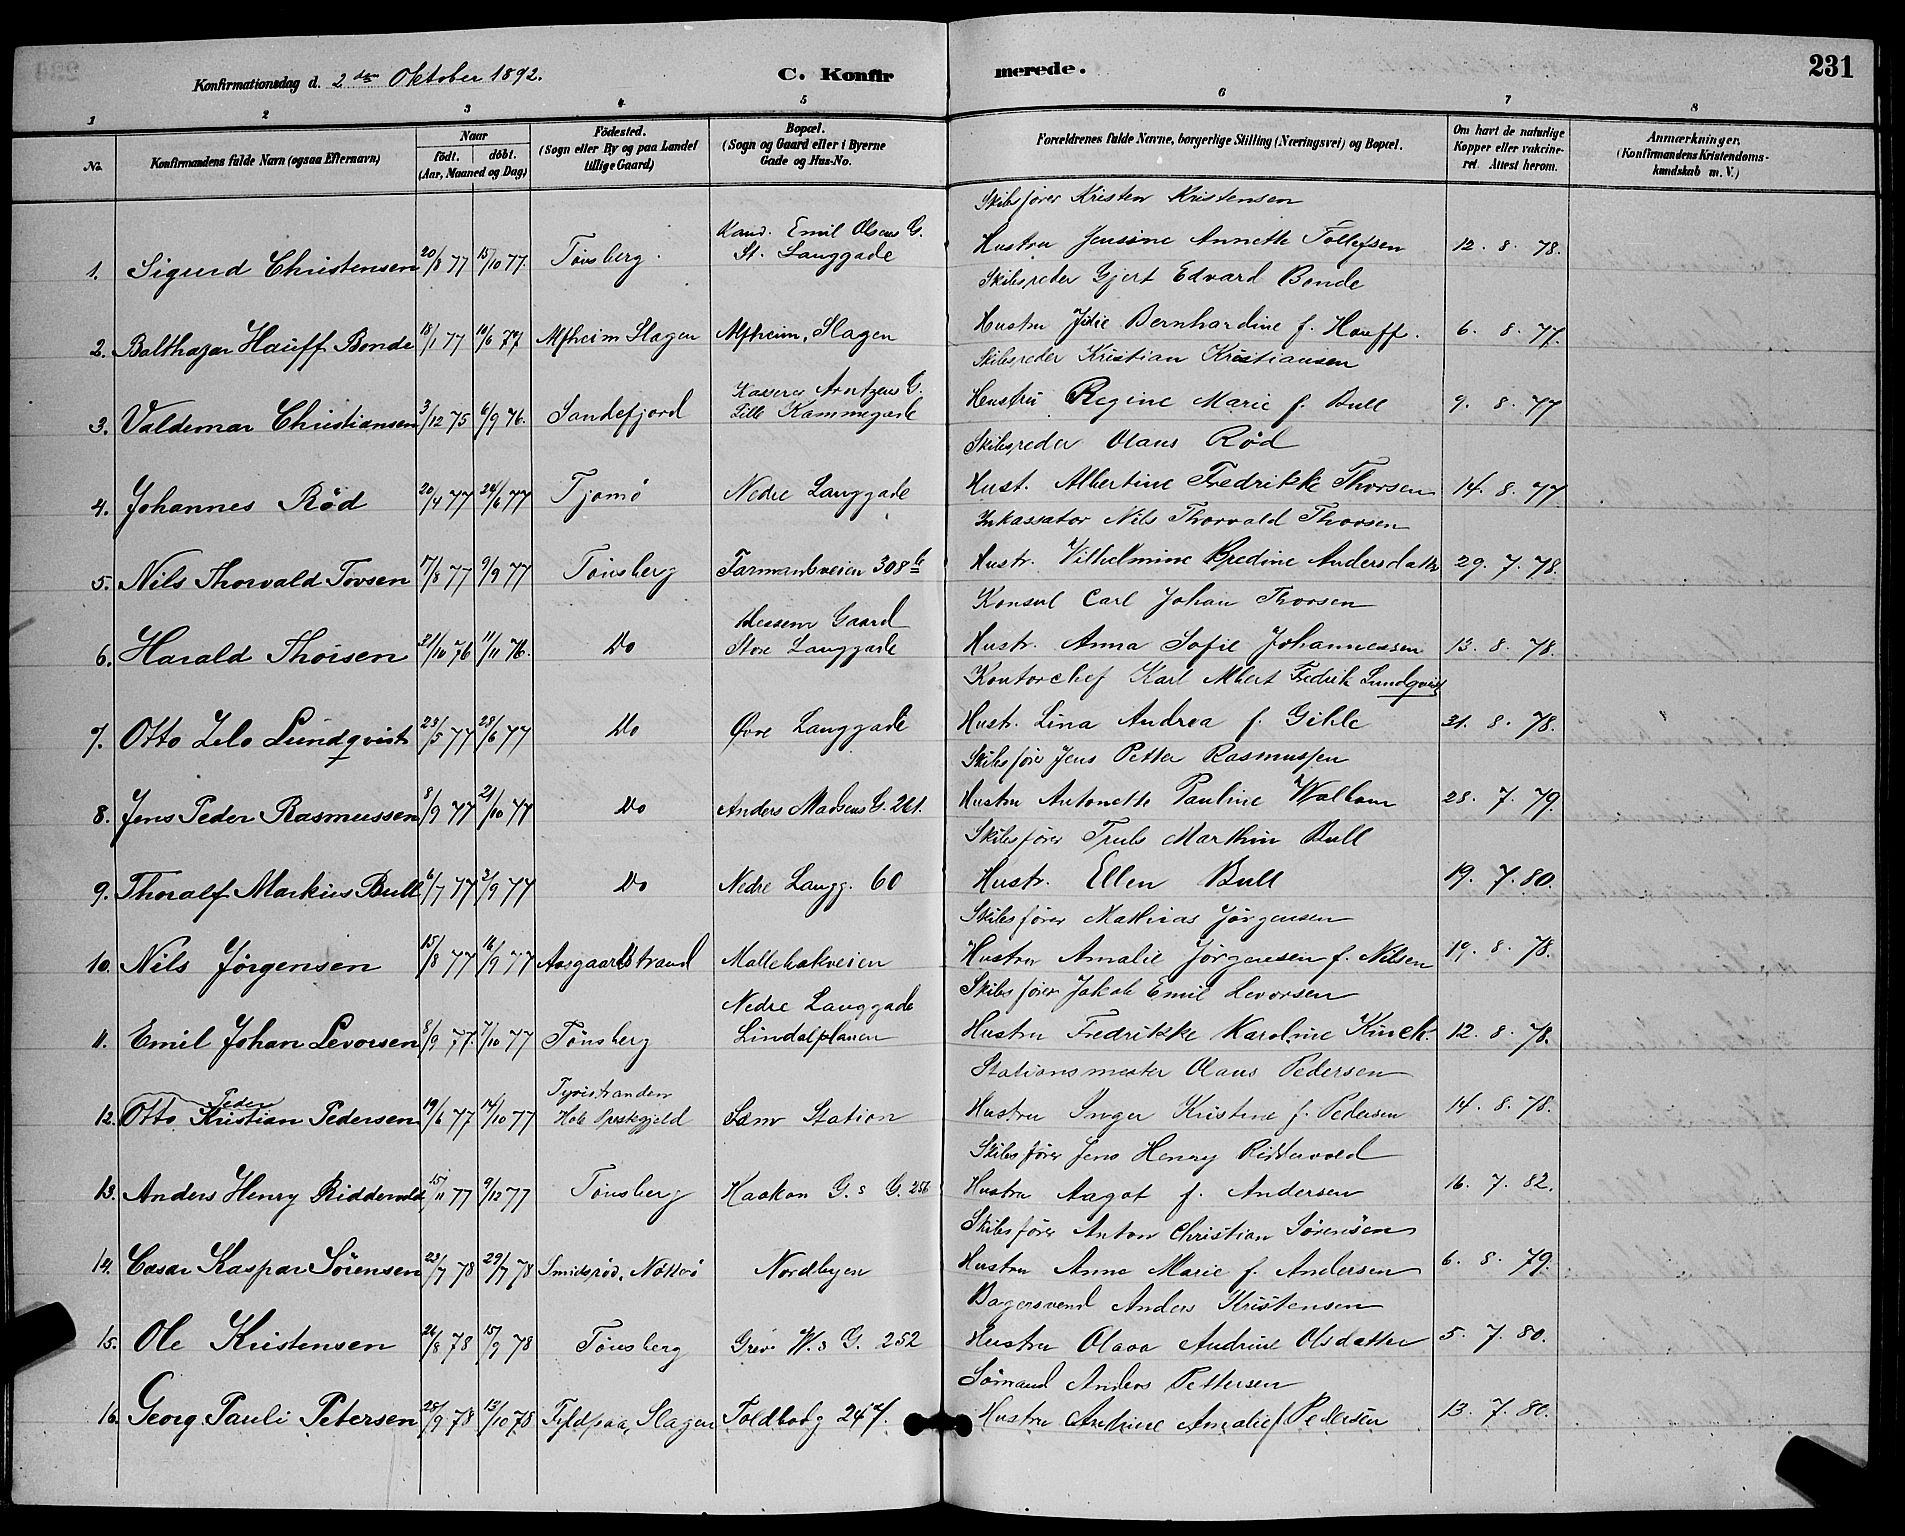 Konfirmationsdag d. 2den Oktober 1892.
C. Konfir
merede.
231
1 2 3 4 5 6 7 8
No.
Konfirmandens fulde Navn (ogsaa Efternavn)
Naar
födt. döbt.
(Aar, Maaned og Dag)
Födested.
(Sogn eller By og paa Landet
tillige Gaard)
Bopæl.
(Sogn og Gaard eller i Byerne
Gade og Hus-No.
Forældrenes fulde Navne, borgerlige Stilling (Næringsvei) og Bopæl.
Om havt de naturlige
Kopper eller vakcine-
ret. Attest herom.
Anmærkninger,
(Konfirmandens Kristendoms-
kundskab m. V.)
Skibsfører Kristen Kristensen
Kand. Emil Olsens G.
1. Sigurd Christensen 20/8 77 15/10 77. Tönsberg. St. Langgade Hustru Jensine Annette Tollefsen 12. 8. 78.
Skibsreder Gjert Edvard Bonde
2. Balthazar Hauff Bonde 18/1 77 10/6 77 Alfheim Slagen Alfheim, Slagen Hustru Julie Bernhardine f. Hauff. 6. 8. 77.
Skibsreder Kristian Kristiansen
Kasserer Arntzens G.
3. Valdemar Christiansen 3/12 75 6/9 76. Sandefjord Lille Kammegade Hustru Regine Marie f. Bull 9. 8. 77
Skibsreder Olaus Röd
4. Johannes Röd 20/4 77 24/6 77 Tjømø Nedre Langgade Hust. Albertine Fredrikke Thorsen 14. 8. 77
Inkassator Nils Thorvald Thorsen
5. Nils Thorvald Tovsen 17/8 77 9/9 77 Tönsberg Farmandsveien 308 b Hustr. Vilhelmine Andersdatter 29. 7. 78.
Konsul Carl Johan Thorsen
Gaard
6. Harald Thorsen 21/10 76 11/11 76. Do Store Langgade Hustr. Anna Sofie Johannessen 13. 8. 78.
Kontorchef Karl Albert Fredrik Lundqvist
7. Otto Lundqvist 23/5 77 28/6 77 Do Övre Langgade Hustr. Lina Andrea f. Gihle 21. 8. 78.
Skibsfører Jens Petter Rasmussen
8. Jens Peder Rasmussen 8/9 77 21/10 77 Do Anders Madsens G. 261. Hustru Antonette Pauline 28. 7. 79.
Skibsfører Truls Marthin Bull
9. Thoralf Markus Bull 6/7 77 2/9 77 Do Nedre Langg. 60 Hustr. Ellen Bull 19. 7. 80.
Skibsfører Mathias Jörgensen
10. Nils Jörgensen 15/8 77 16/9 77 Aasgaardstrand Møllebakveien Hustru Amalie Jörgensen f. Nilsen 19. 8. 78.
Skibsfører Jakob Emil Levorsen
Nedre Langgade
11. Emil Johan Levorsen 8/9 77. 7/10 77 Tönsberg Lindalplanen Hustru Fredrikke Karoline Kinck. 12. 8. 78.
Stationsmester Olaus Pedersen
Peder Tyristranden
12. Otto Kristian Pedersen 19/6 77 14/10 77 Hole Prestegjeld Sem Station Hustru Inger Kristine f. Pedersen 14. 8. 78.
Skibsfører Jens Henry Riddervold
13. Anders Henry Riddervold 15/11 77 9/12 77 Tönsberg Haakon G.s G. 256 Hustru Aagot f. Andersen 16. 7. 82.
Skibsfører Anton Christian Sörensen
14. Cæsar Kaspar Sörensen 23/7 78 29/7 78 Smidsröd, Nötterö Nordbyen Hustru Anne Marie f. Andersen 6. 8. 79.
Bagersvend Anders Kristensen
15. Ole Kristensen 26/8 78 15/9 78 Tönsberg Grev W.s G. 252 Hustru Olava Andrine Olsdatter 5. 7. 80.
Sömand Anders Pettersen
16. Georg Pauli Petersen 28/9 78 13/10 78 Fyldpaa, Slagen Toldbodg 247. Hustru Andrine Amalie f Pedersen 13. 7. 80.